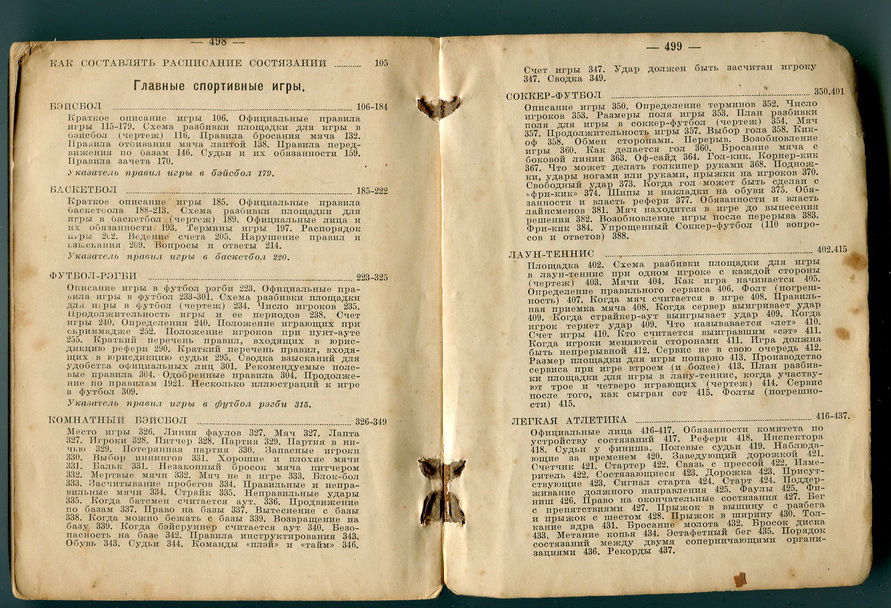 — 498 —
КАК СОСТАВЛЯТЬ РАСПИСАНИЕ СОСТЯЗАНИЙ 105
Главные спортивные игры.
БЭЙСБОЛ 106-184
Краткое описание игры 106. Официальные правила
игры 115-179. Схема разбивки площадки для игры в
бэйсбол (чертеж) 116. Правила бросания мяча 132.
Правила отбивания мяча лаптой 138. Правила перед-
вижения по базам 146. Судьи и их обязанности 159.
Правила зачета 170.
Указатель правил игры в бэйсбол 179.
БАСКЕТБОЛ 185-222
Краткое описание игры 185. Официальные правила
баскетбола 188-213. Схема разбивки площадки для
игры в баскетбол (чертеж) 189. Официальные лица и
их обязанности 193. Термины игры 197. Распорядок
игры 202. Ведение счета 205. Нарушение правил и
взыскания 209. Вопросы и ответы 214.
Указатель правил игры в баскетбол 220.
ФУТБОЛ-РЭГБИ 223-325
Описание игры в футбол рэгби 223. Официальные пра-
вила игры в футбол 233-301. Схема разбивки площадки
для игры в футбол (чертеж) 234. Число игроков 235.
Продолжительность игры и ее периодов 238. Счет
игры 240. Определения 240. Положение играющих при
скриммадже 252. Положение игроков при пунт-ауте
255. Краткий перечень правил, входящих в юрис-
дикцию рефери 290. Краткий перечень правил, входя-
щих в юрисдикцию судьи 295. Сводка взысканий для
удобства официальных лиц 301. Рекомендуемые поле-
вые правила 304. Одобренные правила 304. Продолже-
ние по правилам 1921. Несколько иллюстраций к игре
в футбол 309.
Указатель правил игры в футбол рэгби 315.
КОМНАТНЫЙ БЭЙСБОЛ 326-349
Место игры 326. Линия фаулов 327. Мяч 327. Лапта
327. Игроки 328. Питчер 328. Партия 329. Партия в ни-
чью 329. Потерянная партия 330. Запасные игроки
330. Выбор иннингов 331. Хорошие и плохие мячи
331. Бальк 331. Незаконный бросок мяча питчером
332. Мертвые мячи 332. Мяч не в игре 333. Блок-бол
333. Засчитывание пробегов 334. Правильные и непра-
вильные мячи 334. Страйк 335. Неправильные удары
335. Когда батсмен считается аут. 336. Продвижение
по базам 337. Право на базы 337. Вытеснение с базы
338. Когда можно бежать с базы 339. Возвращение на
базу 339. Когда бэйсруннер считается аут 340. Безо-
пасность на базе 342. Правила инструктирования 343.
Обувь 343. Судьи 344. Команды «плэй» и «тайм» 346.
— 499 —
Счет игры 347. Удар должен быть засчитан игроку
347. Сводка 349.
СОККЕР-ФУТБОЛ 350.401
Описание игры 350. Определение терминов 352. Число
игроков 353. Размеры поля игры 353. План разбивки
поля для игры в соккер-футбол (чертеж) 354. Мяч
357. Продолжительность игры 357. Выбор гола 358. Кик-
оф 358. Обмен сторонами. Перерыв. Возобновление
игры 360. Как делается гол 360. Бросание мяча с
боковой линии 363. Оф-сайд 364. Гол-кик. Корнер-кик
367. Что может делать голкипер руками 368. Поднож-
ки, удары ногами или руками, прыжки на игроков 370.
Свободный удар 373. Когда гол может быть сделан с
«фри-кик» 374. Шипы и накладки на обуви 375. Обя-
занности и власть рефери 377. Обязанности и власть
лайнсменов 381. Мяч находится в игре до вынесения
решения 382. Возобновление игры после перерыва 383.
Фри-кик 384. Упрощенный Соккер-футбол (110 вопро-
сов и ответов) 388.
ЛАУН-ТЕННИС 402.415
Площадка 402. Схема разбивки площадки для игры
в лаун-теннис при одном игроке с каждой стороны
(чертеж) 403. Мячи 404. Как игра начинается 405.
Определение правильного сервиса 406. Фолт (погреш-
ность) 407. Когда мяч считается в игре 408. Правиль-
ная приемка мяча 408. Когда сервер выигрывает удар
409. Когда страйкер-аут выигрывает удар 409. Когда
игрок теряет удар 409. Что называется «лет» 410.
Счет игры 410. Кто считается выигравшим «сэт» 411.
Когда игроки меняются сторонами 411. Игра должна
быть непрерывной 412. Сервис не в свою очередь 412.
Размер площадки для игры попарно 413. Производство
сервиса при игре втроем (и более) 413. План разбив-
ки площадки для игры в лаун-теннис, когда участву-
ют трое и четверо играющих (чертеж) 414. Сервис
после того, как сыгран сэт 415. Фолты (погрешно-
сти) 415.
ЛЕГКАЯ АТЛЕТИКА 416-437.
Официальные лица 416-417. Обязанности комитета по
устройству состязаний 417. Рефери 418. Инспектора
418. Судьи у финиша. Полевые судьи 419. Наблюда-
ющие за временем 420. Заведующий дорожкой 421.
Счетчик 421. Стартер 422. Связь с прессой 422. Изме-
ритель 422. Состязающиеся 423. Дорожка 423. Присут-
ствующие 423. Сигнал старта 424. Старт 424. Поддер-
живание должного направления 425. Фаулы 425. Фи-
ниш 426. Право на окончательные состязания 427. Бег
с препятствиями 427. Прыжок в вышину с разбега
и прыжок с шестом 428. Прыжок в ширину 430. Тол-
кание ядра 431. Бросание молота 432. Бросок диска
433. Метание копья 434. Эстафетный бег 435. Порядок
состязаний между двумя соперничающими органи-
зациями 436. Рекорды 437.